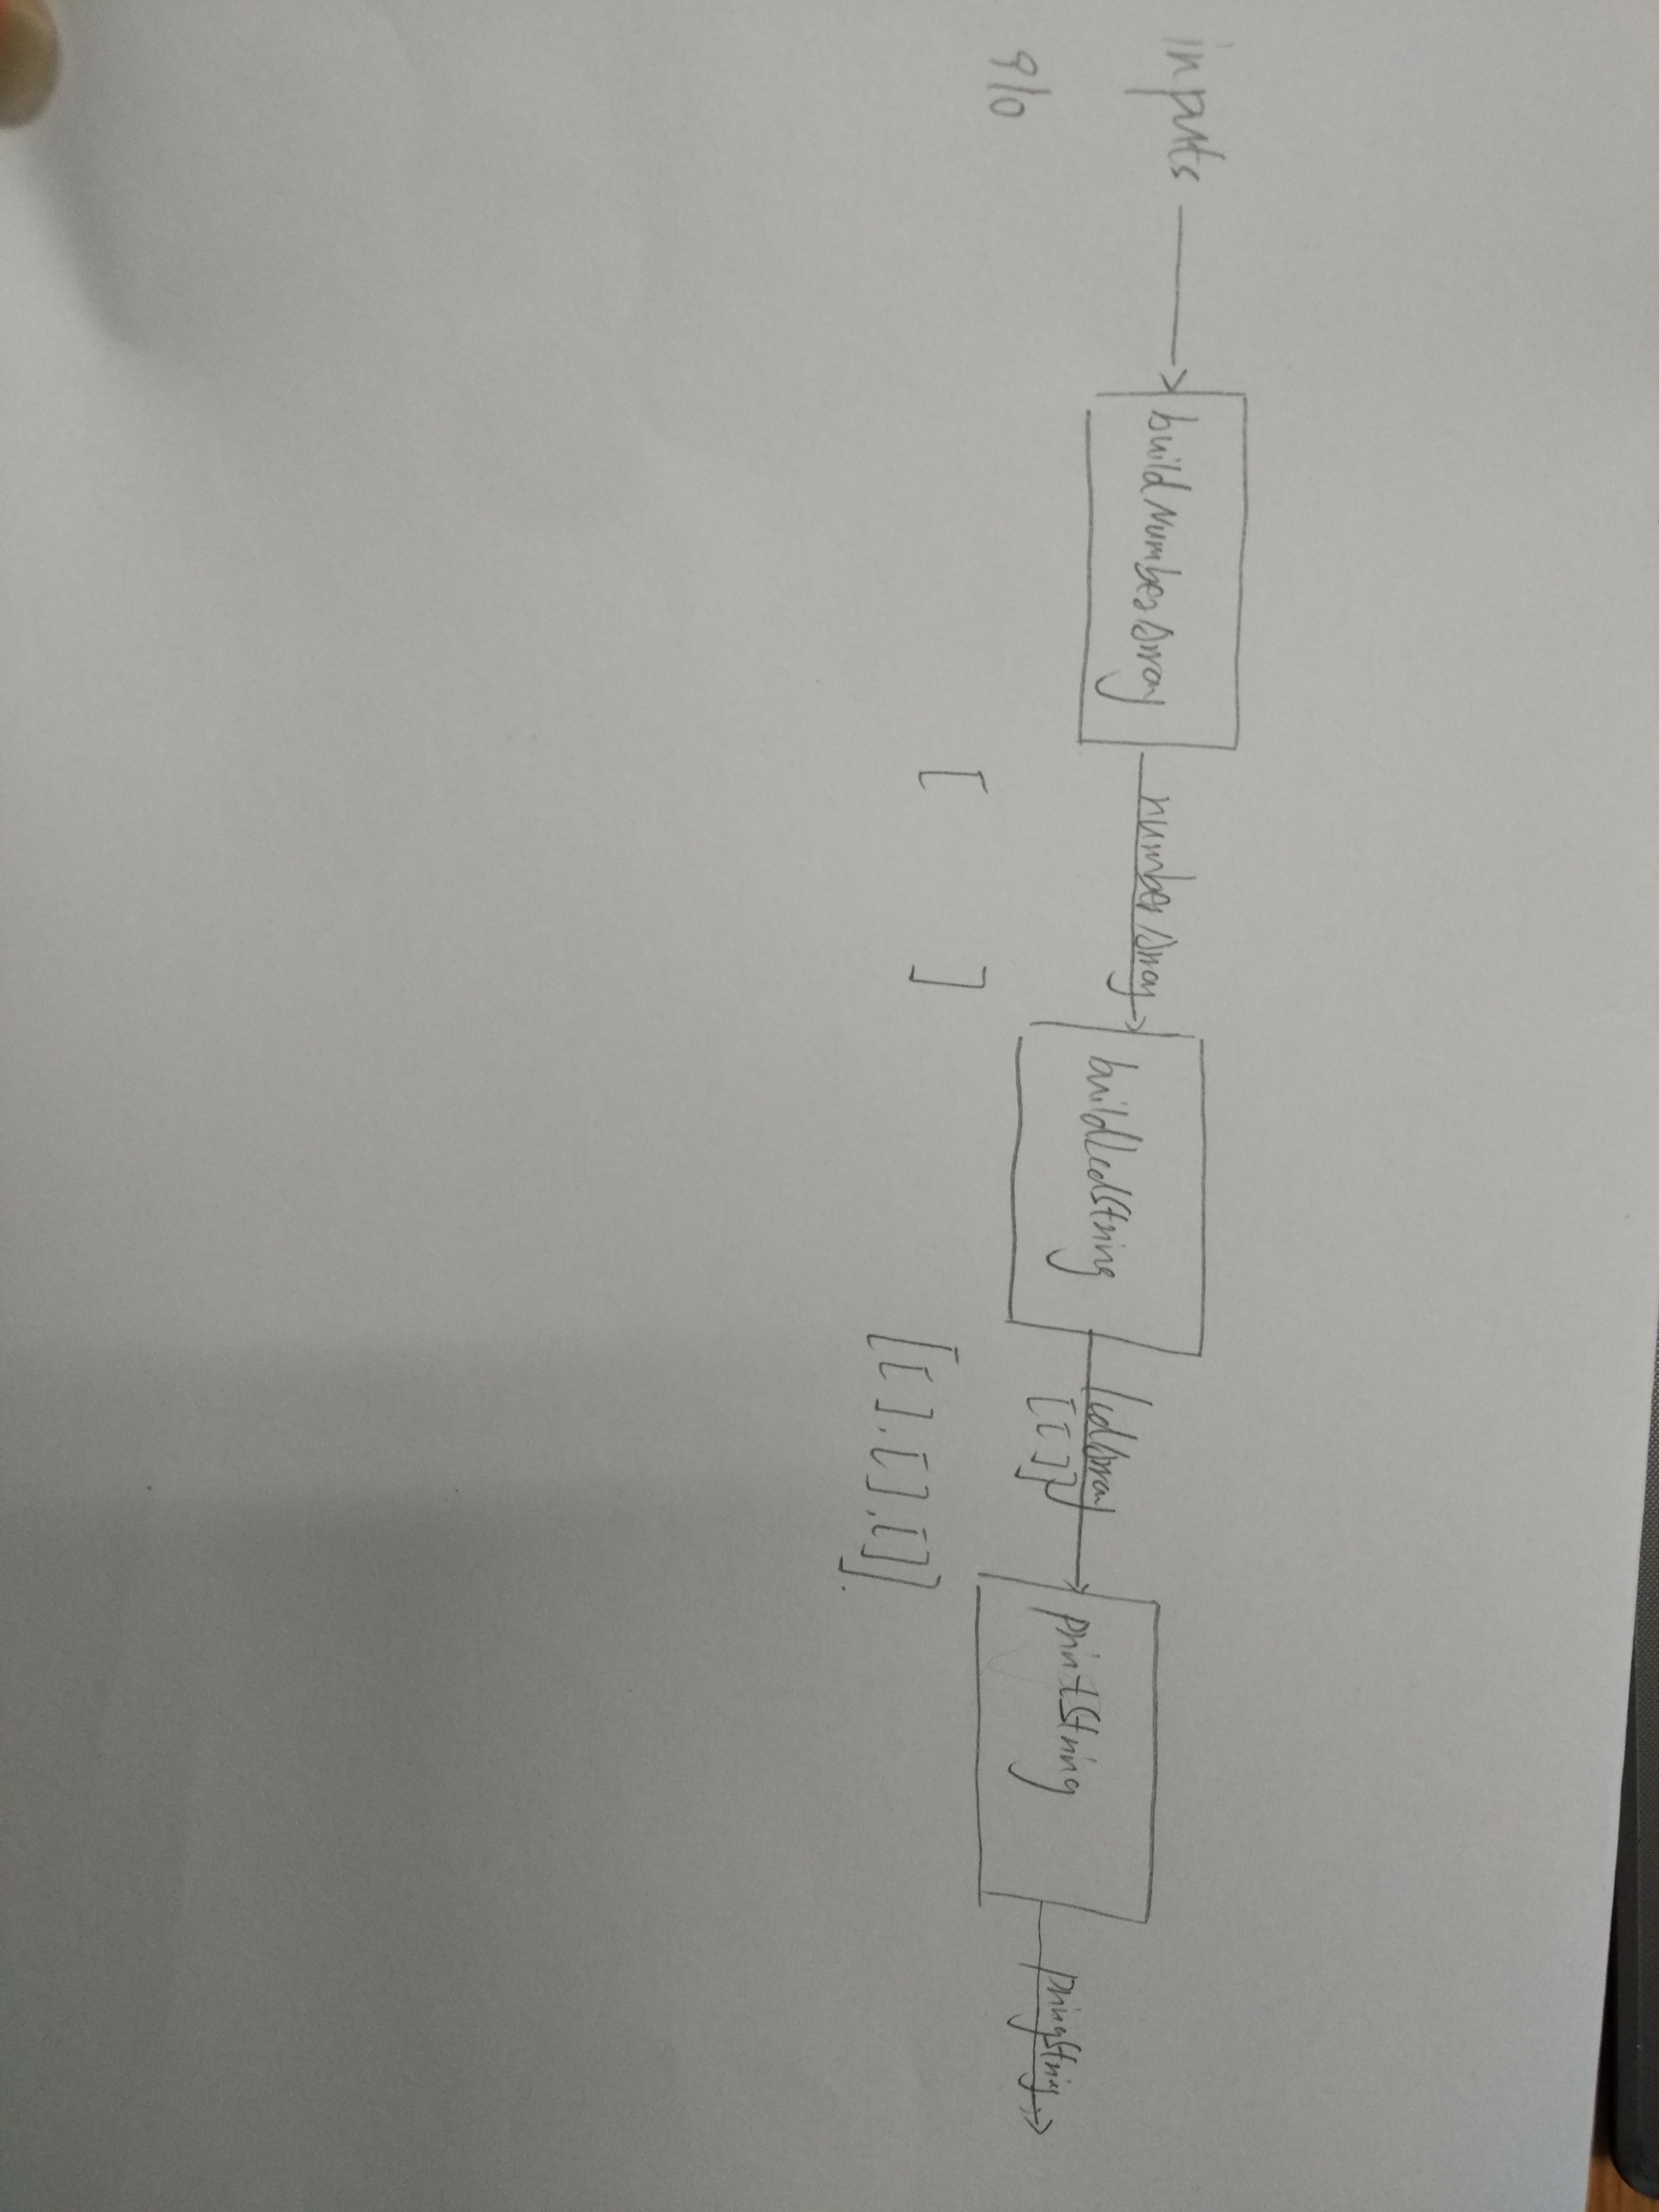 inputs
910
buildNumberArray
numberArray
[ ]
buildLcdString
lcdArray
[[ ]]
[[ ],[ ],[ ]].
printString
pringString